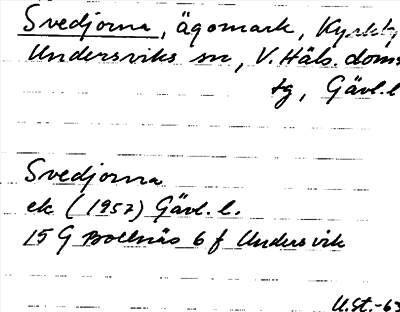 Svedjorna, ägomark, Kyrkby
Undersviks sn, V. Häls. doms
tg, Gävl. l
Svedjorna
ek (1957) Gävl. l.
15 G Bollnäs 6 f Undersvik
U.St.-63